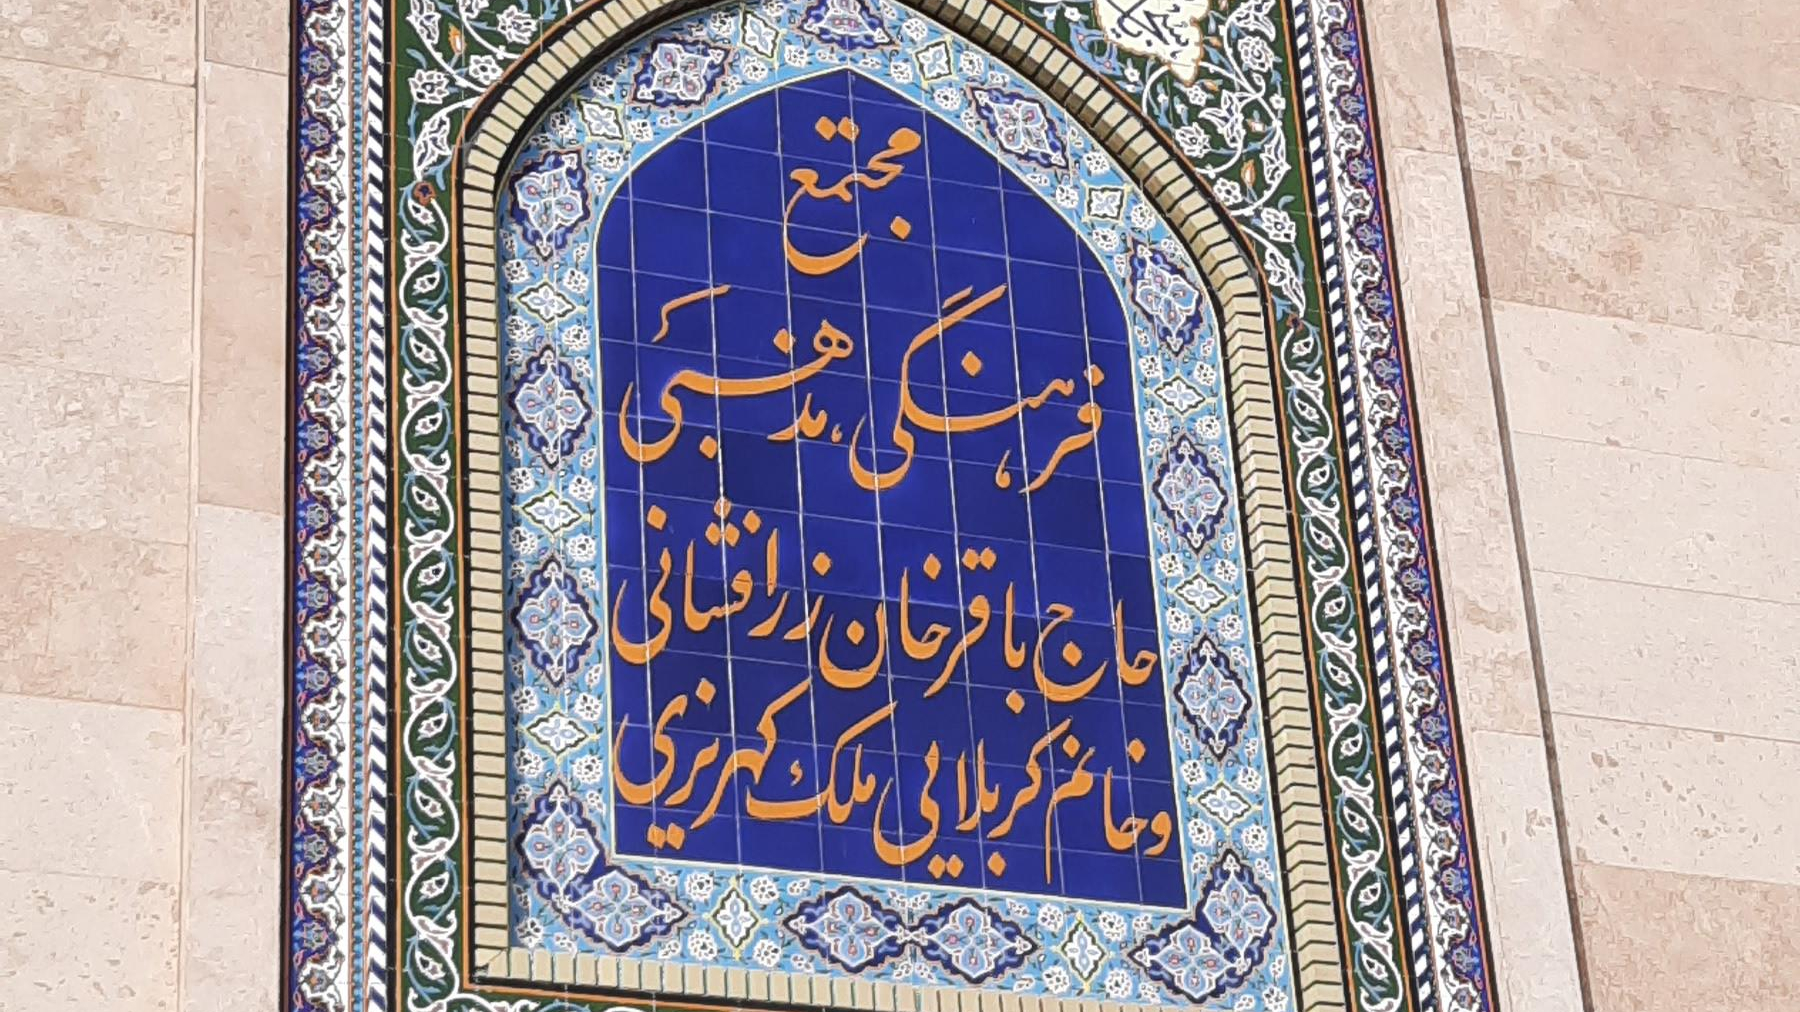 مجتمع
فرهنگی، مذهبی
حاج باقرخان زرافشانی
و خانم کربلایی ملک کهریزی